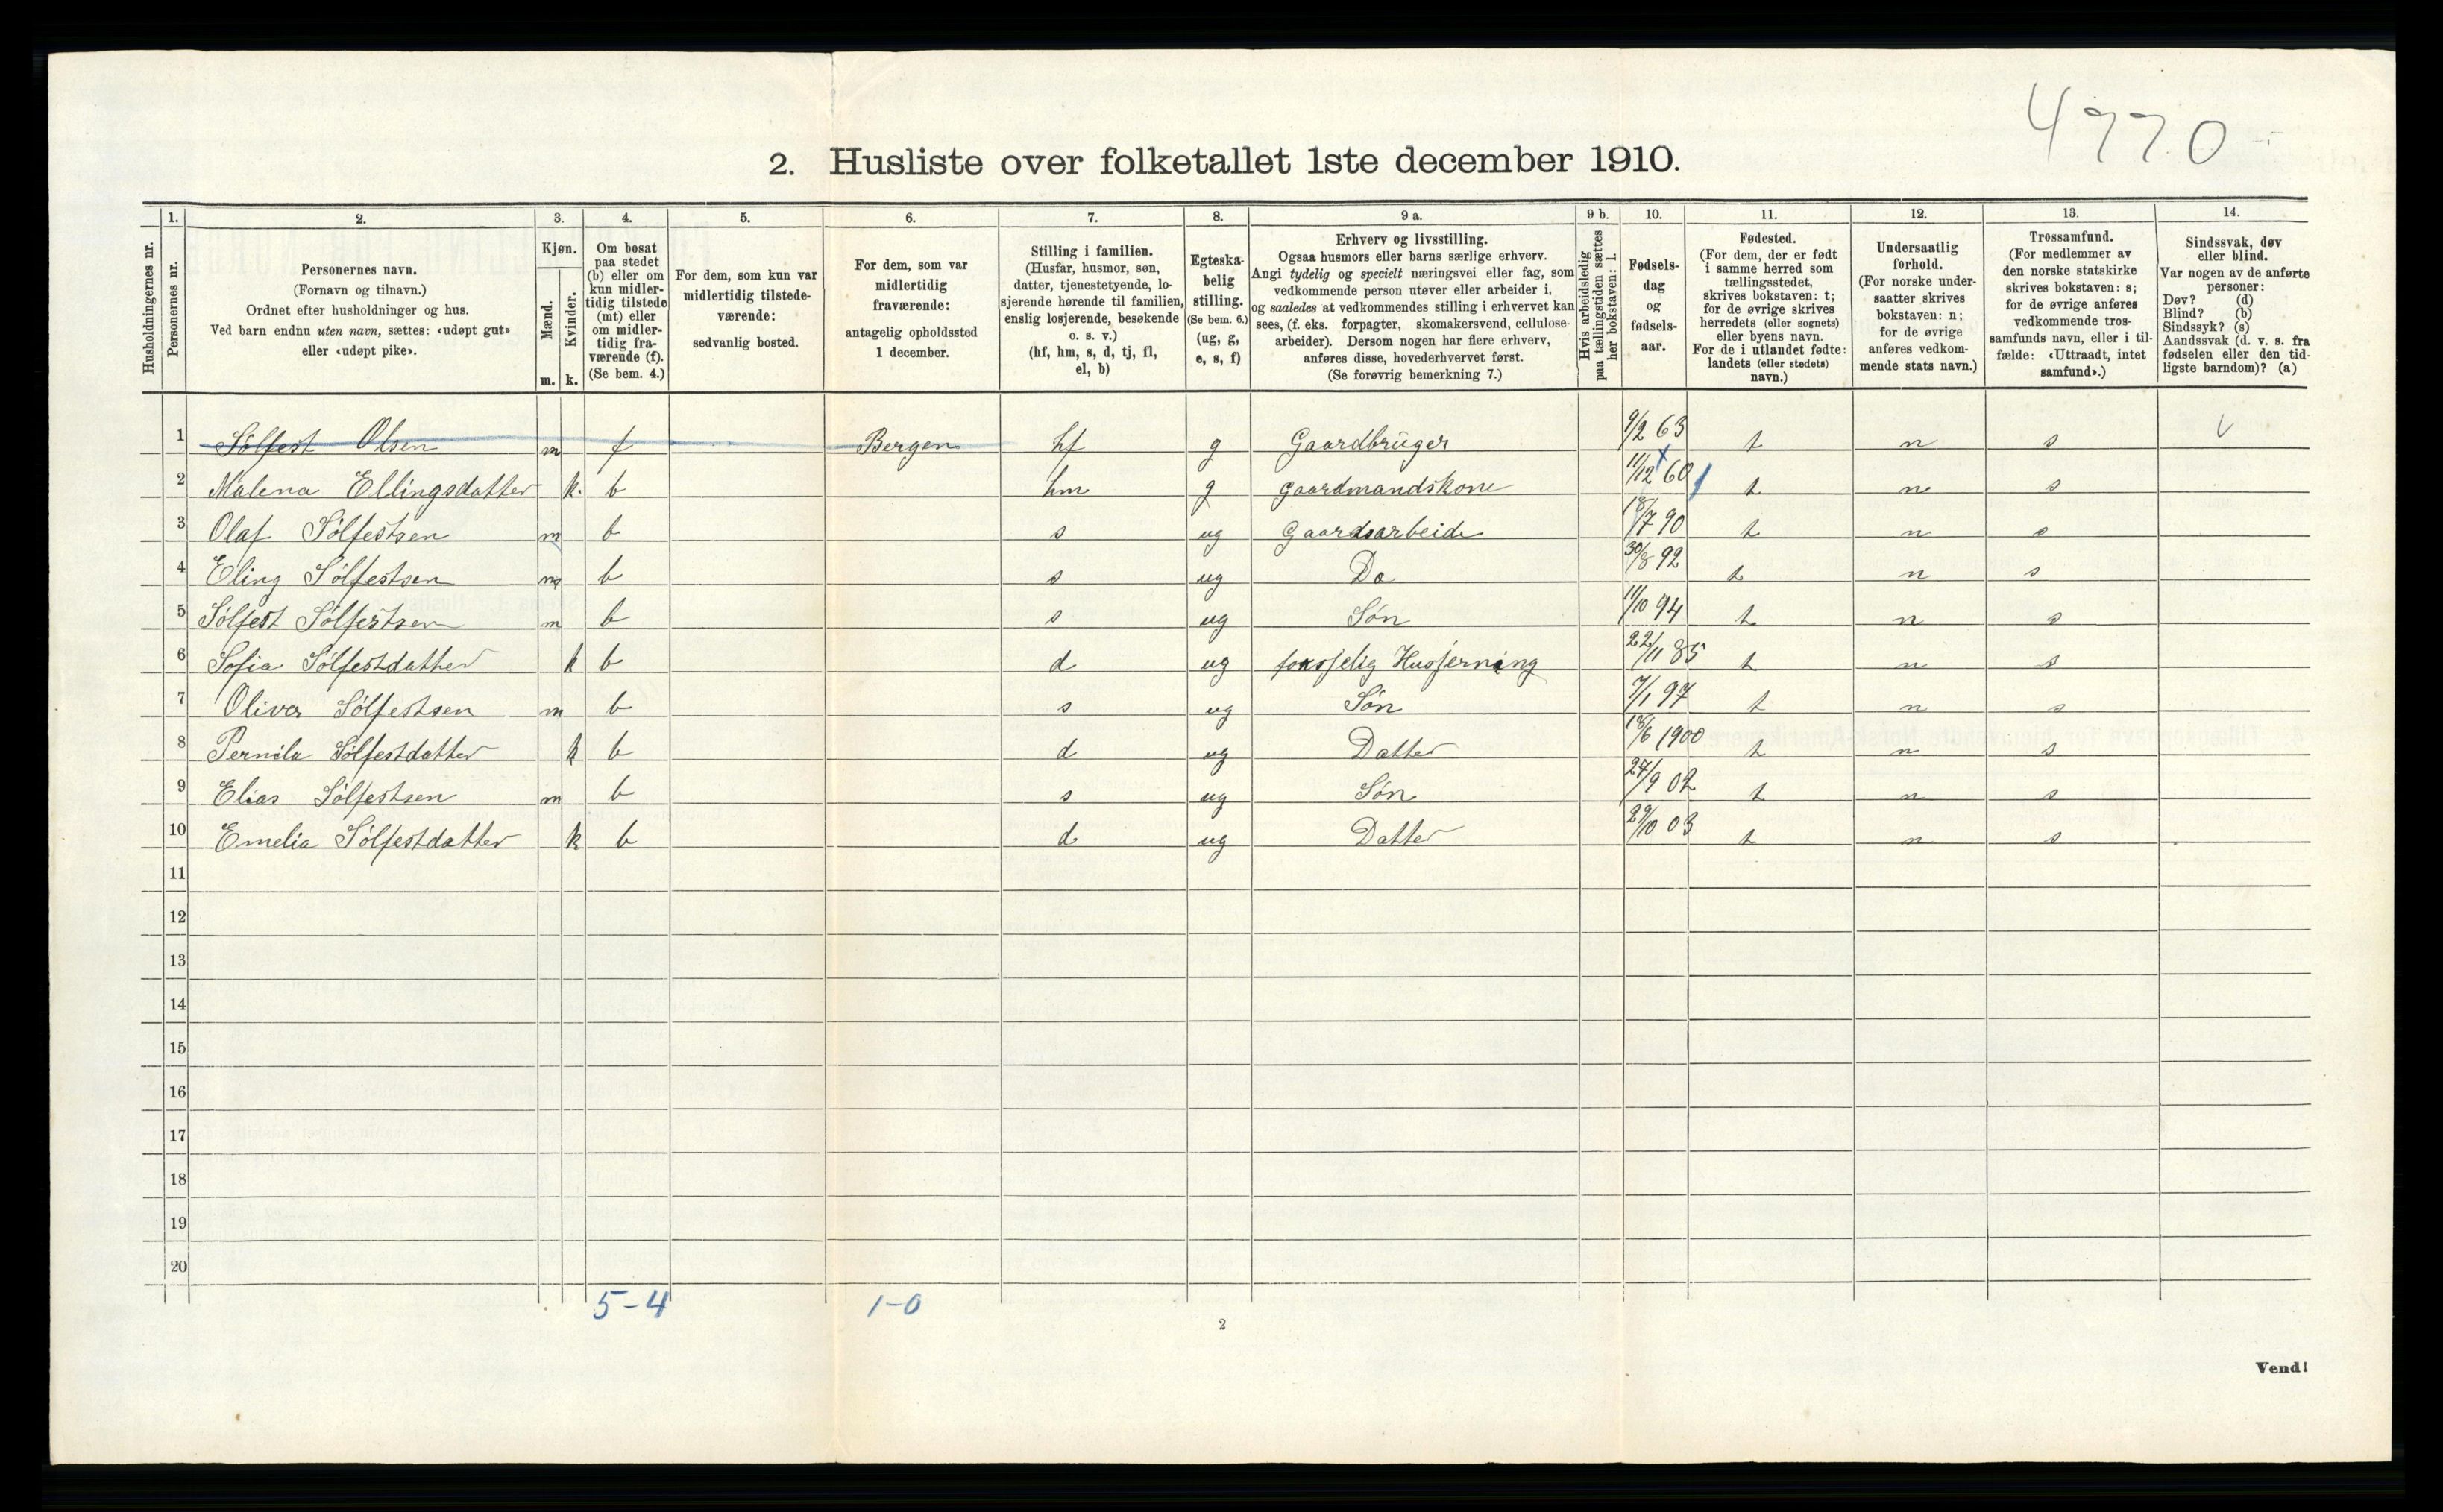 4770
2. Husliste over folketallet 1ste december 1910.
Husholdningernes nr.
1. Personernes nr.
2. Personernes navn. (Fornavn og tilnavn.) Ordnet efter husholdninger og hus. Ved barn endnu uten navn, sættes: «udøpt gut» eller «udøpt pike».
3. Kjøn. Mænd. m. Kvinder. k.
4. Om bosat paa stedet (b) eller om kun midlertidig tilstede (mt) eller om midlertidig fraværende (f). (Se bem. 4.)
5. For dem, som kun var midlertidig tilstedeværende: sedvanlig bosted.
6. For dem, som var midlertidig fraværende: antagelig opholdssted 1 december.
7. Stilling i familien. (Husfar, husmor, søn, datter, tjenestetyende, losjerende hørende til familien, enslig losjerende, besøkende o. s. v.) (hf, hm, s, d, tj, fl, el, b)
8. Egteskabelig stilling. (Se bem. 6.) (ug, g, e, s, f)
9 a. Erhverv og livsstilling. Ogsaa husmors eller barns særlige erhverv. Angi tydelig og specielt næringsvei eller fag, som vedkommende person utøver eller arbeider i, og saaledes at vedkommendes stilling i erhvervet kan sees, (f. eks. forpagter, skomakersvend, cellulosearbeider). Dersom nogen har flere erhverv, anføres disse, hovederhvervet først. (Se forøvrig bemerkning 7.)
9 b. Hvis arbeidsledig paa tællingstiden sættes her bokstaven: l.
10. Fødselsdag og fødselsaar.
11. Fødested. (For dem, der er født i samme herred som tællingsstedet, skrives bokstaven: t; for de øvrige skrives herredets (eller sognets) eller byens navn. For de i utlandet fødte: landets (eller stedets) navn.)
12. Undersaatlig forhold. (For norske undersaatter skrives bokstaven: n; for de øvrige anføres vedkommende stats navn.)
13. Trossamfund. (For medlemmer av den norske statskirke skrives bokstaven: s; for de øvrige anføres vedkommende trossamfunds navn, eller i tilfælde: «Uttraadt, intet samfund».)
14. Sindssvak, døv eller blind. Var nogen av de anførte personer: Døv? (d) Blind? (b) Sindssyk? (s) Aandssvak (d. v. s. fra fødselen eller den tidligste barndom)? (a)
1 Sölfest Olsen m f Bergen hf g Gaardbrüger 9/2 63 t n s
2 Malena Ellingsdatter k. b hm g Gaardmandskone 11/12 60 t n s
3 Olaf Sölfestsen m b s ug Gaardsarbeide 18/7 90 t n s
4 Eling Sölfestsen m b s ug Do 30/8 92 t n s
5 Sölfest Sölfestsen m b s ug Sön 11/10 94 t n s
6 Sofia Sölfestdatter k b d ug Husjerning 22/11 85 t n s
7 Oliver Sölfestsen m b s ug Sön 7/1 97 t n s
8 Pernila Sölfestdatter k b d ug Datter 18/6 1900 t n s
9 Elias Sölfestsen m b s ug Sön 27/9 02 t n s
10 Emelia Sölfestdatter k b d ug Datter 29/10 03 t n s
11
12
13
14
15
16
17
18
19
20
5-4 1-0
2
Vend!